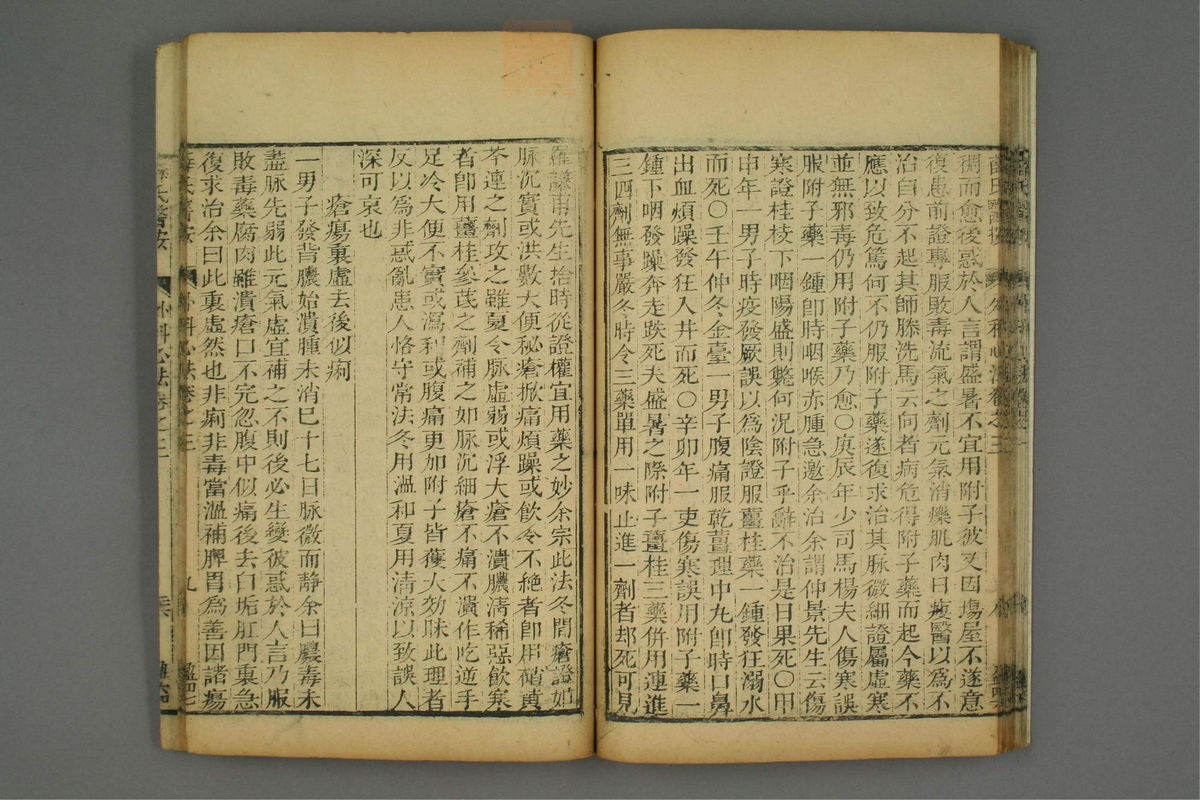 稠而愈後惑於人言謂盛暑不宜用附子彼又因塲屋不遂意
復患前證專服敗毒流氣之劑元氣消爍肌肉日瘦醫以爲不
治自分不起其師滕洗馬云向者病危得附子藥而起今藥不
應以致危篤何不仍服附子藥遂復求治其脉微細證屬虛寒
並無邪毒仍用附子藥乃愈〇庚辰年少司馬楊夫人傷寒誤
服附子藥一鍾卽時咽喉赤腫急邀余治余謂仲景先生云傷
寒證桂枝下咽陽盛則斃何况附子乎辭不治是日果死〇甲
申年一男子時疫發厥誤以爲陰證服薑桂藥一鍾發狂溺水
而死〇壬午仲冬金臺一男子腹痛服乾薑理中丸卽時口鼻
出血煩躁發狂入井而死〇辛卯年一吏傷寒誤用附子藥一
鍾下咽發躁奔走跌死夫盛暑之際附子薑桂三藥併用連進
三四劑無事嚴冬時令三藥單用一味止進一劑者却死可見
羅謙甫先生捨時從證權宜用藥之妙余宗此法冬間瘡證如
脉沉實或洪數大便秘瘡掀痛煩躁或飲冷不絕者卽用硝黃
芩連之劑攻之雖夏令脉虛弱或浮大瘡不潰膿淸稀惡飲寒
者卽用薑桂參芪之劑補之如脉沉細瘡不痛不潰作吃逆手
足冷大便不實或瀉利或腹痛更加附子皆獲大効昧此理者
反以爲非惑亂患人恪守常法冬用溫和夏用清凉以致誤人
深可哀也
瘡瘍裏虛去後似痢
一男子發背膿始潰腫未消已十七日脉微而静余曰膿毒未
盡脉先弱此元氣虛宜補之不則後必生變彼惑於人言乃服
敗毒藥腐肉雖潰瘡口不完忽腹中似痛後去白垢肛門裏急
復求治余曰此裏虛然也非痢非毒當溫補脾胃爲善因諸瘍
氏醫按 外科心法卷之三 九